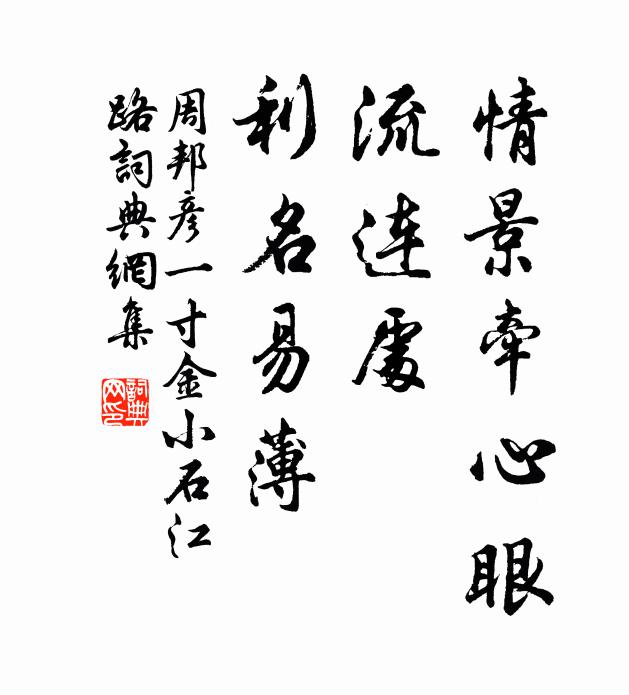 情景牽心眼
流连處
利名易薄
周邦彦一寸金小石江
路詞典網集
詞典网印